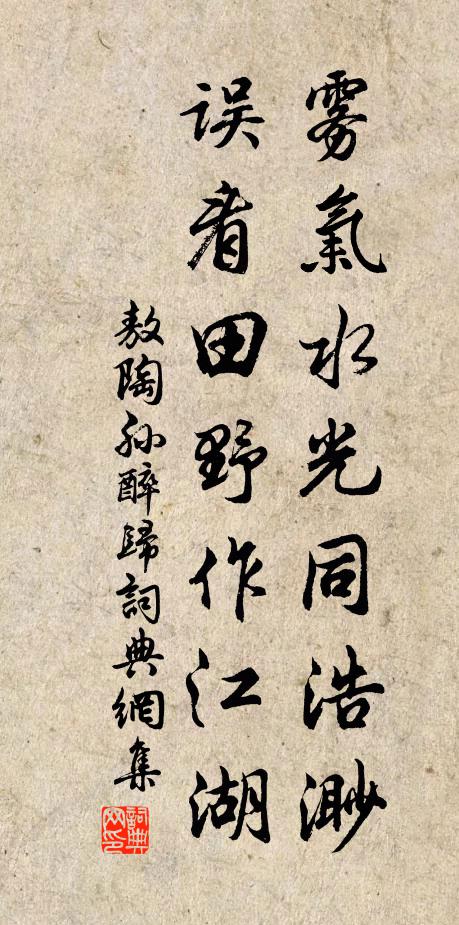 雾氣水光同浩渺
误看田野作江湖
敖陶孙醉歸詞典網集
詞典网印